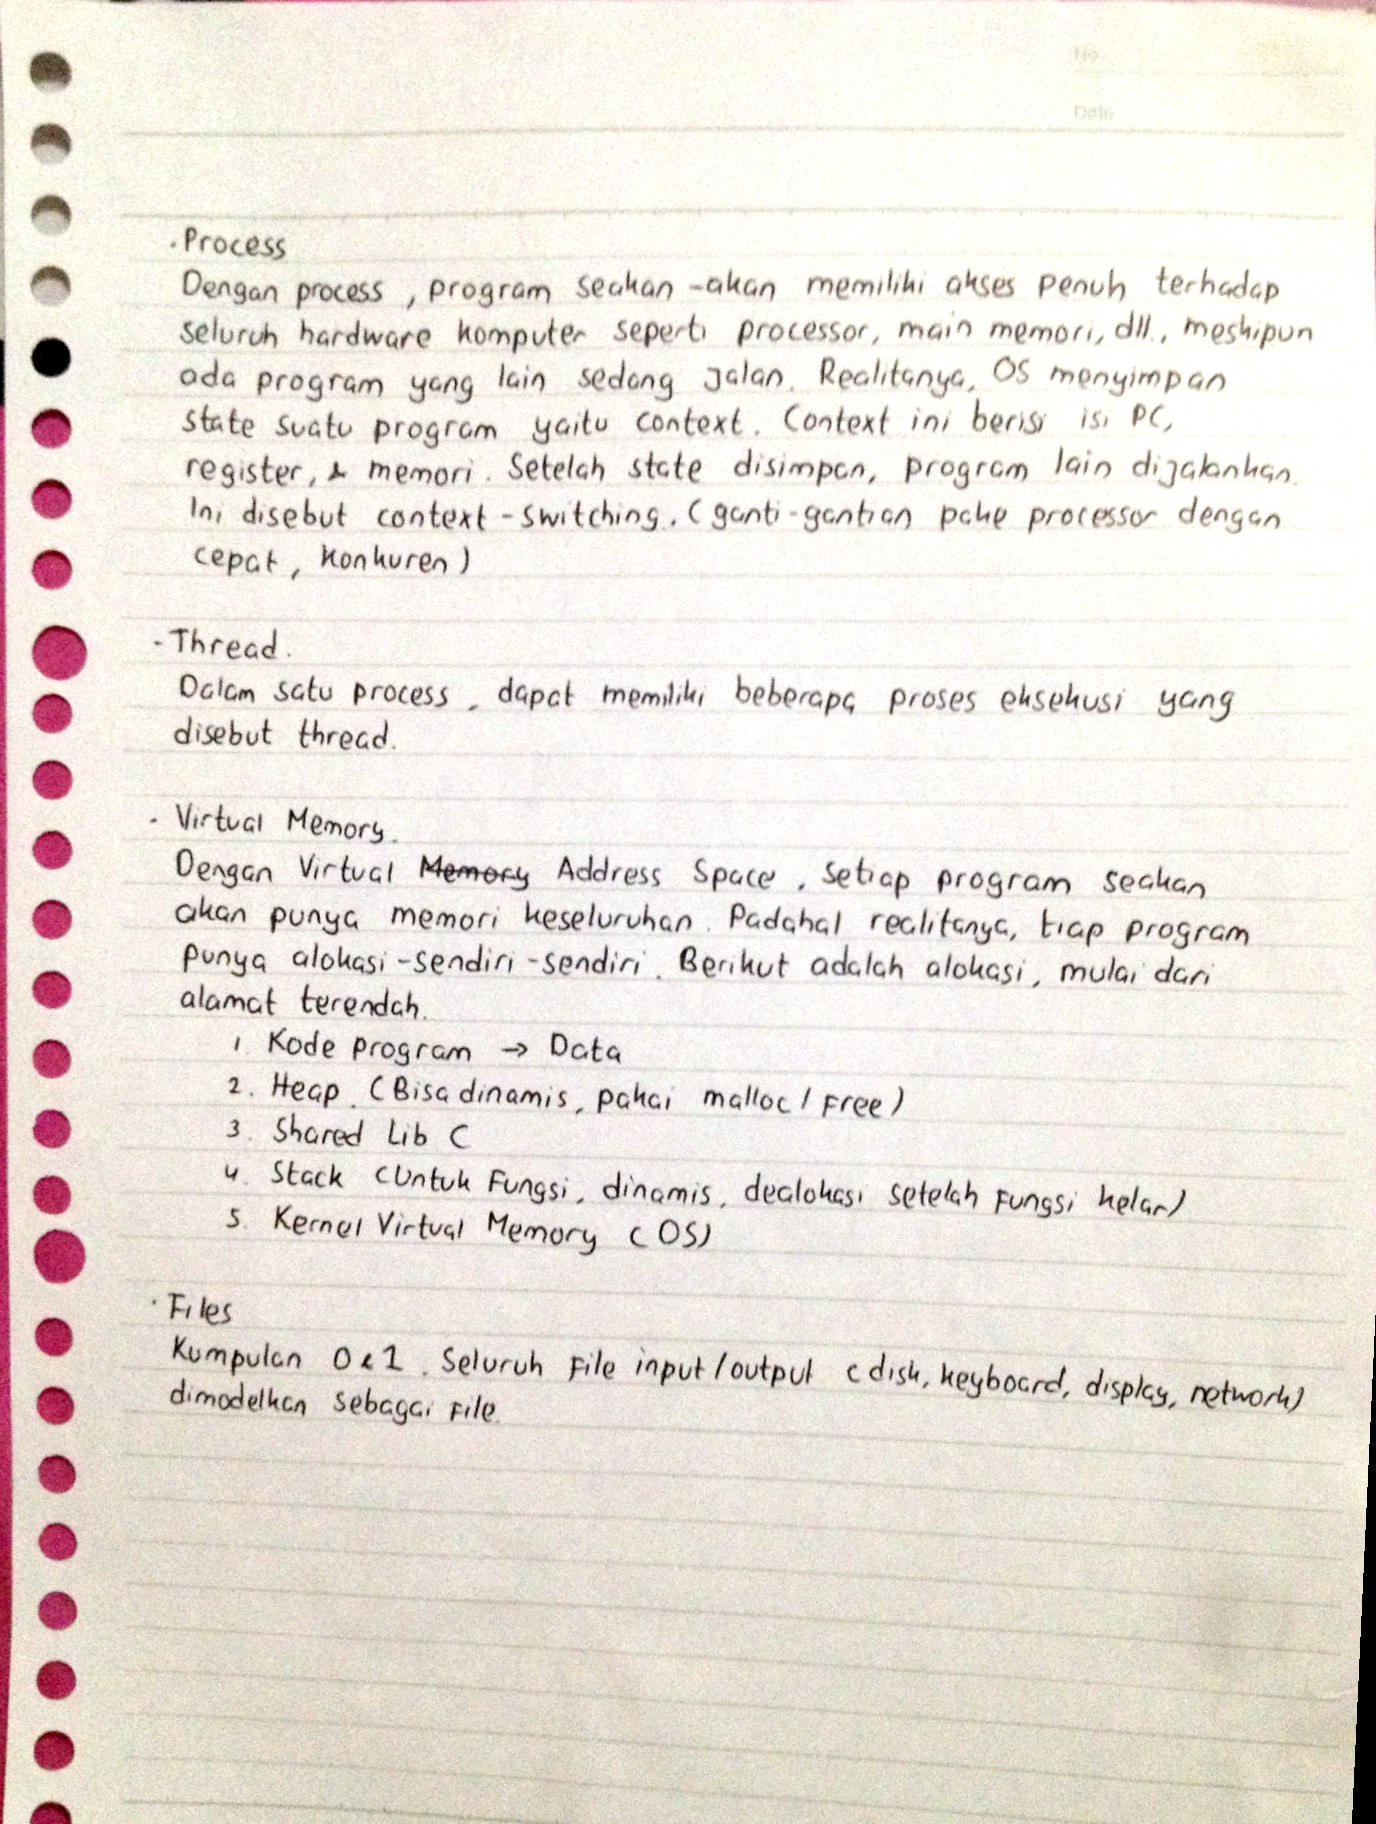 No
Date
· Process
Dengan process, program seakan-akan memiliki akses penuh terhadap
seluruh hardware komputer seperti processor, main memori, dll., meskipun
ada program yang lain sedang jalan. Realitanya, OS menyimpan
state suatu program yaitu context. Context ini berisi isi PC,
register, & memori. Setelah state disimpan, program lain dijalankan.
Ini disebut context-switching. (ganti-gantian pake processor dengan
cepat, konkuren)
- Thread.
Dalam satu process, dapat memiliki beberapa proses eksekusi yang
disebut thread.
- Virtual Memory.
Dengan Virtual Memory Address Space, setiap program seakan
akan punya memori keseluruhan. Padahal realitanya, tiap program
punya alokasi-sendiri-sendiri. Berikut adalah alokasi, mulai dari
alamat terendah.
1. Kode program → Data
2. Heap. (Bisa dinamis, pakai malloc/free)
3. Shared Lib C
4. Stack (Untuk Fungsi, dinamis, dealokasi setelah fungsi kelar)
5. Kernel Virtual Memory (OS)
· Files
Kumpulan 0 & 1. Seluruh file input/output (disk, keyboard, display, network)
dimodelkan sebagai file.